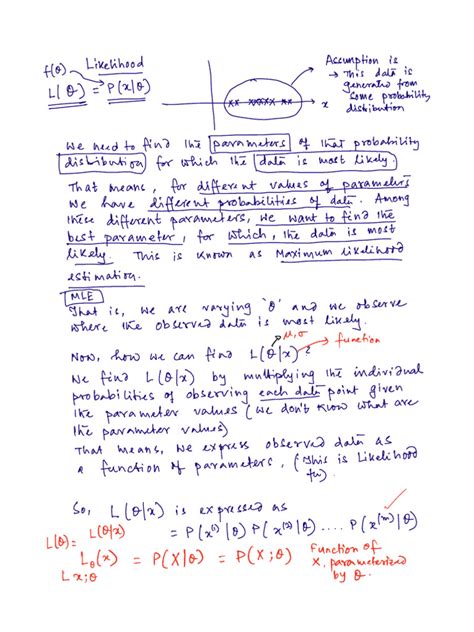 f(θ) Likelihood
L(θ) = P(x|θ)
Assumption is
→ This data is
generated from
some probability
distribution
xx xxxxx xx x
We need to find the parameters of that probability
distribution for which the data is most likely.
That means, for different values of parameters
we have different probabilities of data. Among
these different parameters, we want to find the
best parameter, for which, the data is most
likely. This is known as Maximum likelihood
estimation.
MLE
That is, we are varying 'θ' and we observe
where the observed data is most likely.
μ, σ
Now, how we can find L(θ|x)? → function
We find L(θ|x) by multiplying the individual
probabilities of observing each data point given
the parameter values (we don't know what are
the parameter values)
That means, we express observed data as
a function of parameters, (This is Likelihood
fn).
So, L(θ|x) is expressed as
L(θ|x) = P(x⁽¹⁾|θ) P(x⁽²⁾|θ) .... P(x⁽ᵐ⁾|θ)
L(θ) = L_θ(x) = P(X|θ) = P(X;θ) Function of
X, parameterized
by θ.
L x;θ